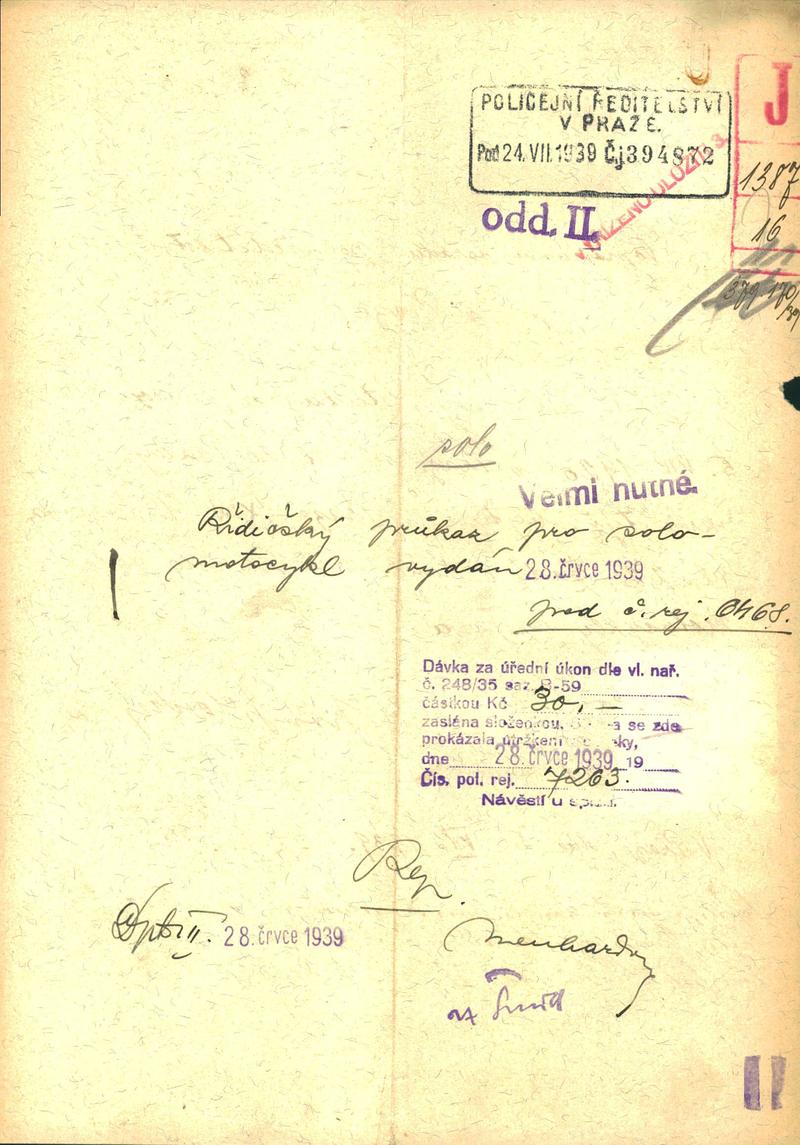 POLICEJNÍ ŘEDITELSTVÍ
V PRAZE.
Pod 24.VII.1939 Čj 394872
J
1387
16
379.170/39
odd. II.
solo
Velmi nutné.
Řidičský průkaz pro solo-
motocykl vydán 28. črvce 1939
pod č. rej. 0468.
Dávka za úřední úkon dle vl. nař.
č. 248/35 saz. B-59
částkou Kč 30,-
zaslána složenkou, se zde
prokázala útržkem
dne 28. črvce 1939 19
Čís. pol. rej. 7263.
Návěstí u
Rep.
28. črvce 1939
II